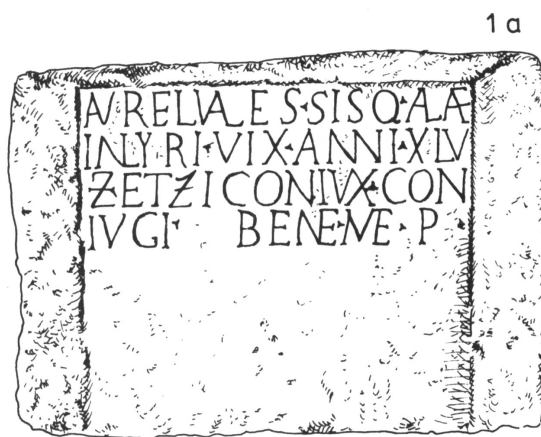 1 a
AVRELVALES·SISQ·ALAE
INLYRI·VIX·ANNI·XLV
ZETZI CONIVX·CON
IVGI· BENE·ME·P